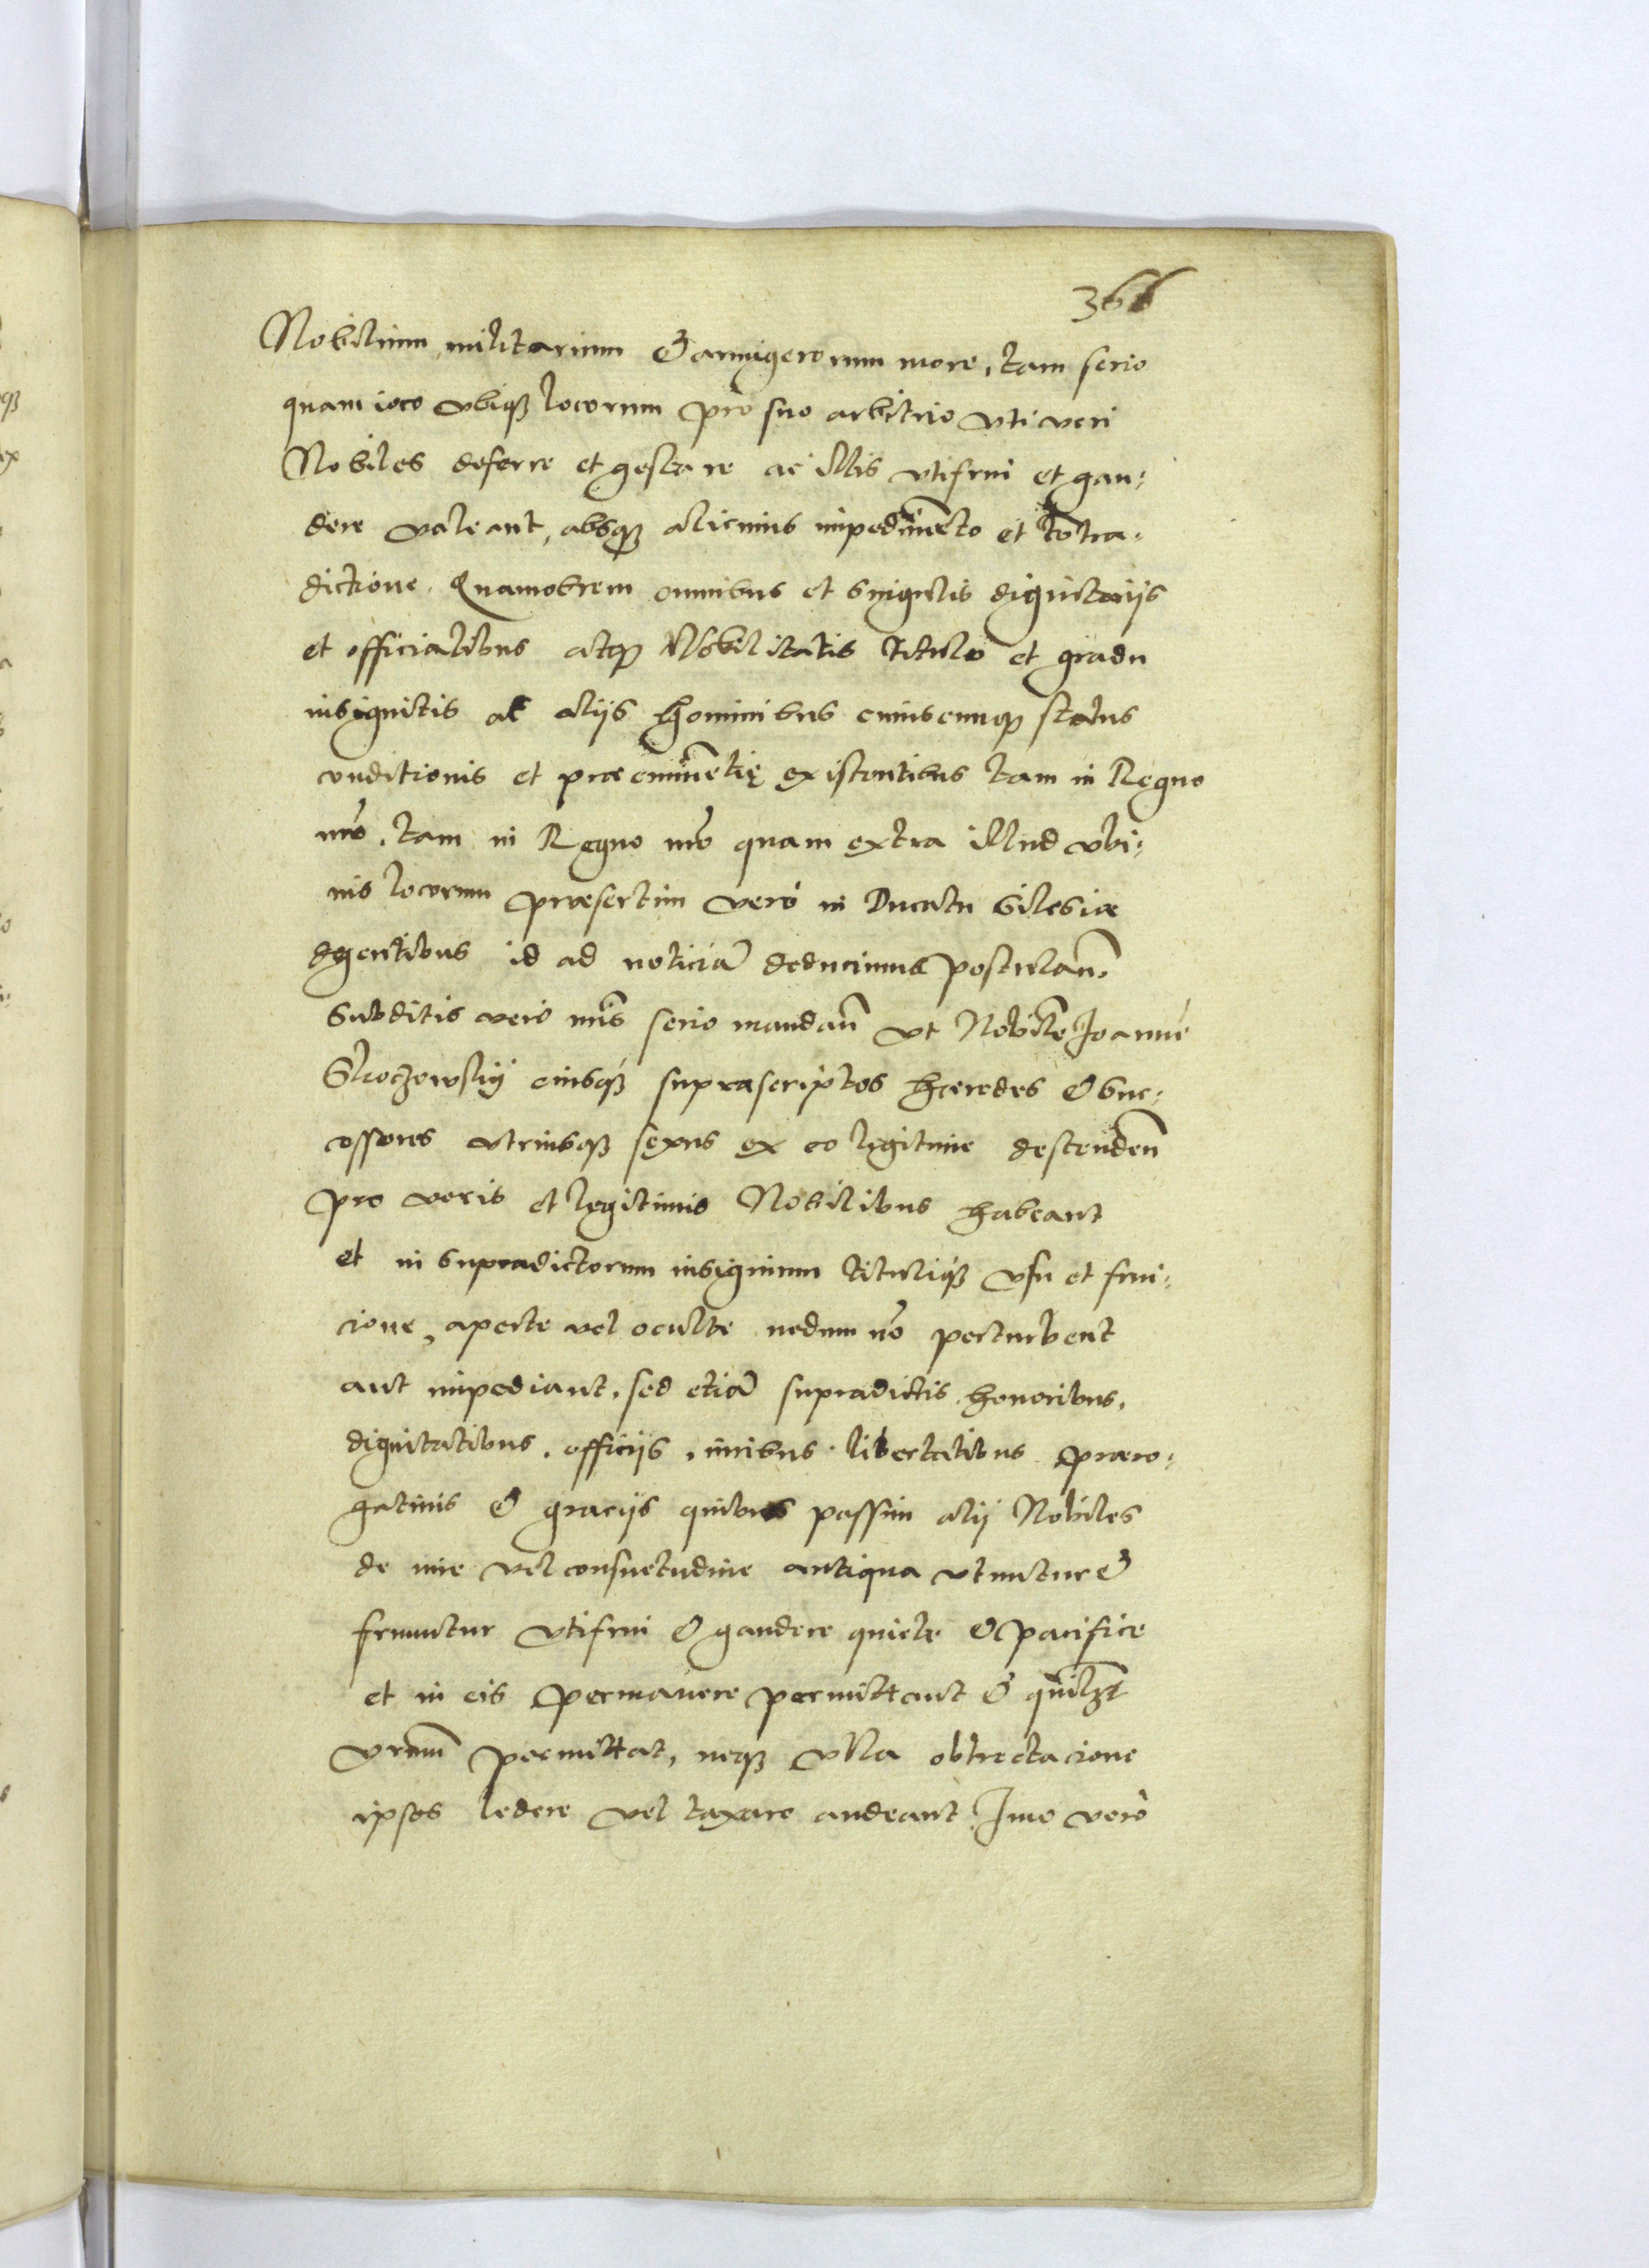 366
Nobilium, militarium & armigerorum more, tam serio
quam ioco vbiqꝫ locorum pro suo arbitrio vti veri
Nobiles deferre et gestare ac illis vtifrui et gau:
dere valeant, absqꝫ alicuius impedimẽto et cõtra:
dictione. Quamobrem omnibus et singulis dignitarijs
et officialibus atqꝫ Nobilitatis titulo et gradu
insignitis ac alijs hominibus cuiuscumqꝫ status
conditionis et præeminẽtię existentibus tam in Regno
nr̃o, tam in Regno nr̃o quam extra illud vbi:
uis locorum præsertim verò in Ducatu Silesiæ
degentibus id ad noticiã deducimus postulañ.
Subditis verò nr̃is serio mandañ vt Nobilẽ Joannẽ
eiusqꝫ suprascriptos hæredes & suc:
cessores vtriusqꝫ sexus ex eo legitime descendeñ
pro veris et legitimis Nobilibus habeant
et in supradictorum insignium tituliqꝫ vsu et frui:
cione, aperte vel oculte nedum nõ perturbent
aut impediant, sed etiã supradictis honoribus,
dignitatibus, officijs, iuribus, libertatibus præro:
gatiuis & gracijs quibus passim alij Nobiles
de iure vel consuetudine antiqua vtuntur &
fruuntur vtifrui & gaudere quiete & pacifice
et in eis permanere permittant & quilꝫt
vr̃um permittat, neqꝫ vlla obtrectacione
ipsos ledere vel taxare audeant Imo verò